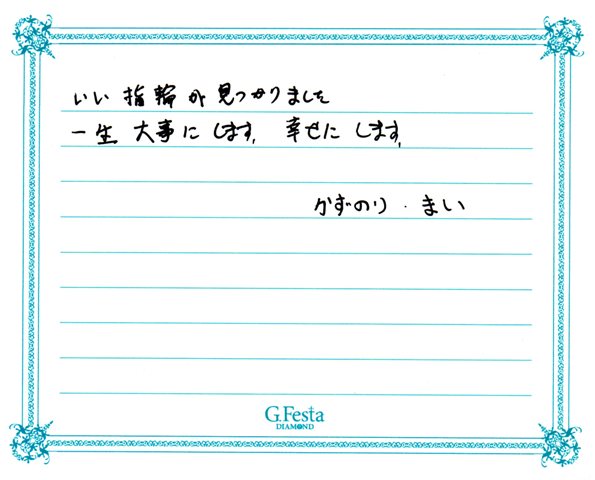 いい指輪が見つかりました
一生大事にします。幸せにします。
かずのり・まい
G.Festa
DIAMOND